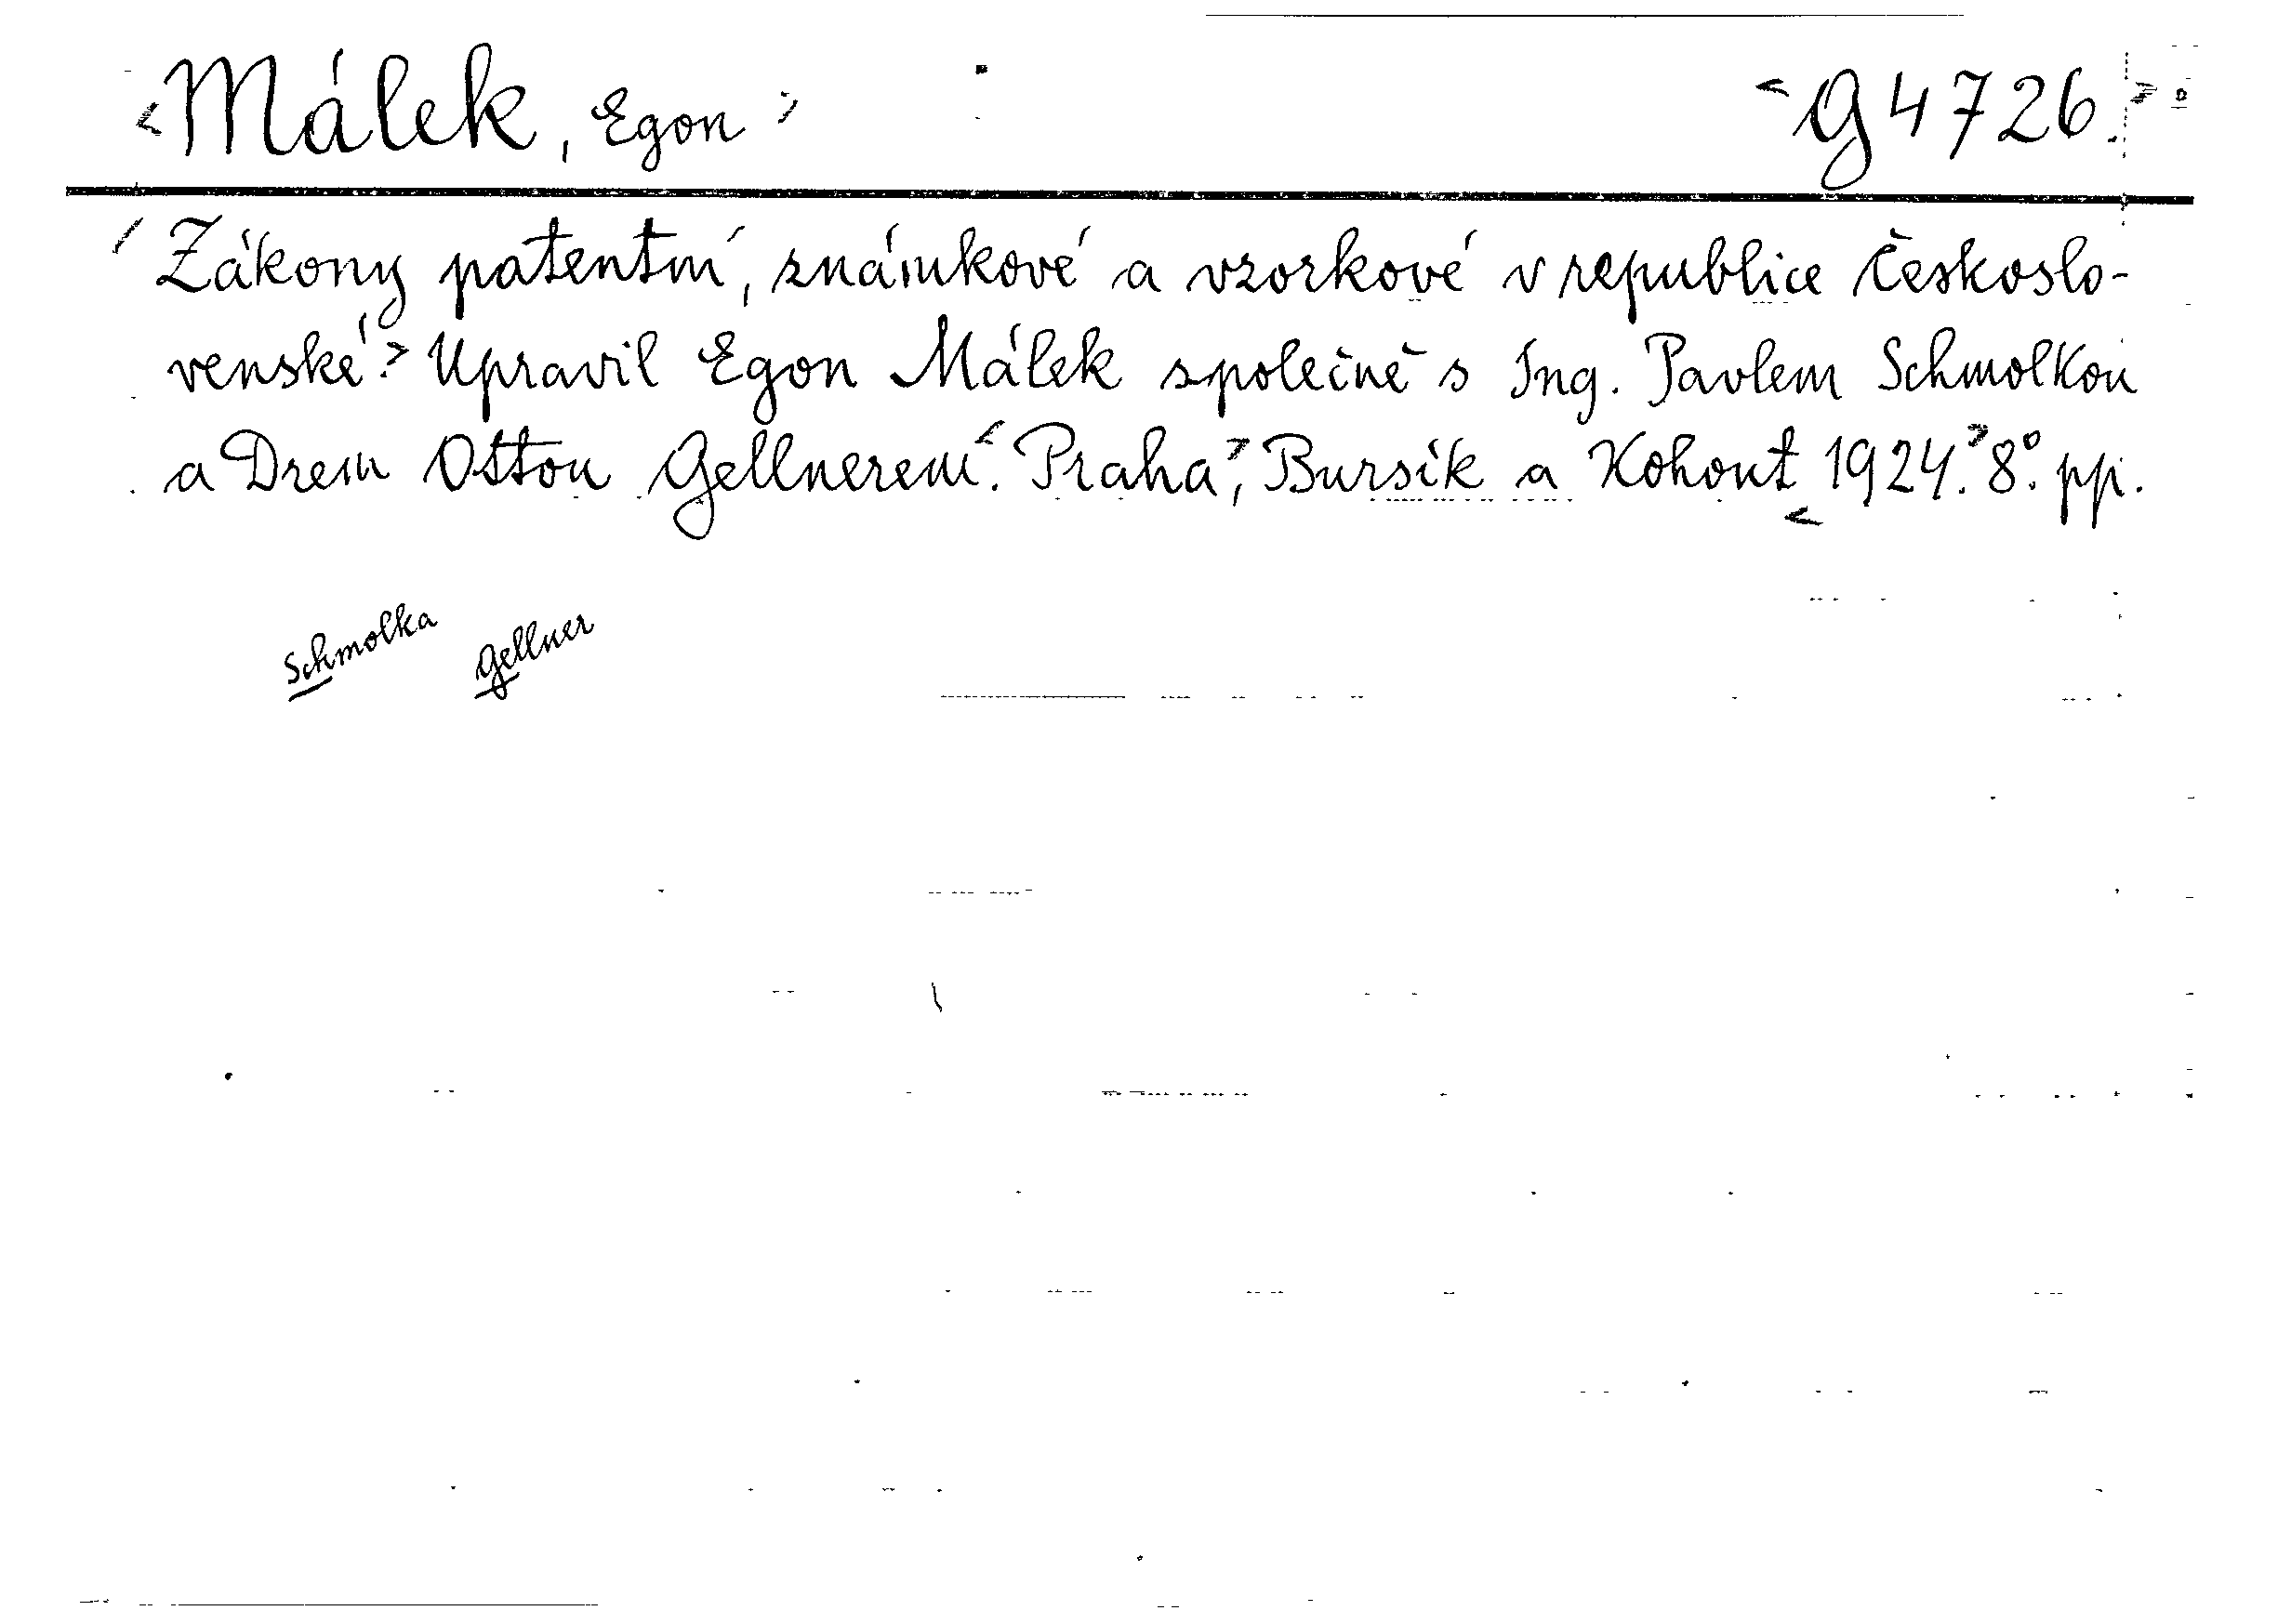 <Málek, Egon> <G 4726.>
<Zákony patentní, známkové a vzorkové v republice českoslo-
venské.> Upravil Egon Málek společně s Ing. Pavlem Schmolkou
a Drem Ottou Gellnerem. <Praha>, Bursík a Kohout <1924.> 8°. pp.
Schmolka Gellner